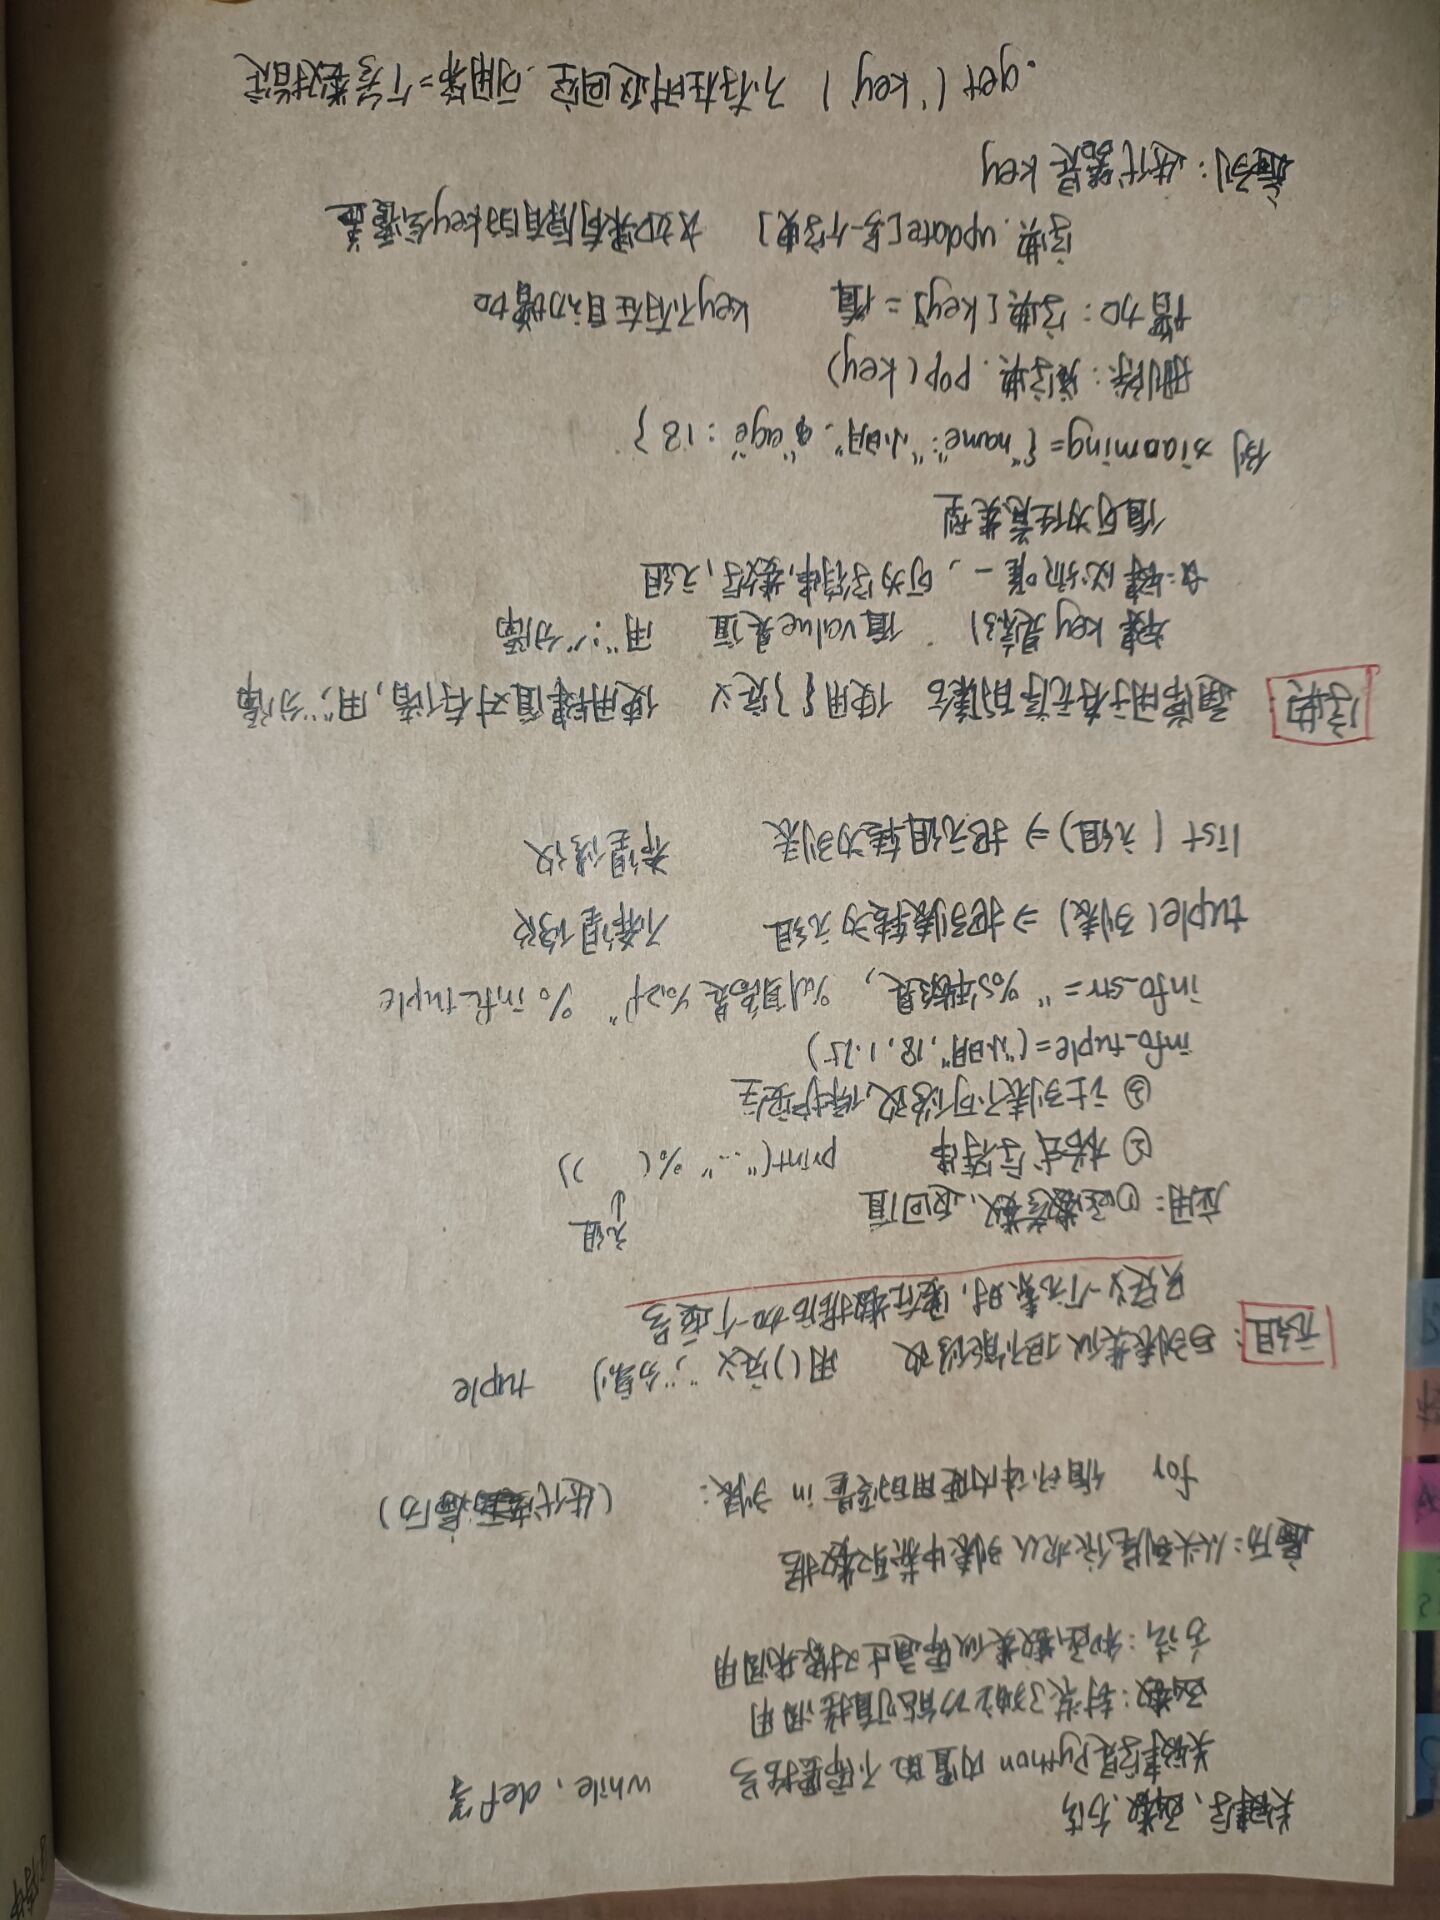 关键字、函数、方法
关键字是Python内置的 不需要括号 while、def等
函数:封装了独立功能可直接调用
方法:和函数类似需通过对象来调用
遍历:从头到尾依次从列表中获取数据
for 循环体内使用的变量 in 列表: (迭代遍历)
元组:与列表类似但不能修改 用()定义 ","分割 tuple
只定义一个元素时,要在数据后加一个逗号
应用:①函数参数、返回值 元组
② 格式字符串 print("..." %( ))
③ 让列表不可修改,保护安全
info_tuple=("小明",18,1.75)
info_str=" %s年龄是, %d身高是%.2f" % info_tuple
tuple(列表)⇒把列表转为元组 不希望修改
list(元组)⇒把元组转为列表 希望修改
字典 通常用于存无序的集合 使用{ }定义 使用键值对存储,用","分隔
键 key是索引 值value是值 用":"分隔
☆:键必须唯一,可为字符串,数字、元组
值可为任意类型
例 xiaoming={"name":"小明","age":18}
删除:字典.pop(key)
增加:字典[key]=值 key不存在自动增加
字典.update[另一个字典] ☆如果有原有的key会覆盖
遍列:迭代器是key
.get('key') 不存在时返回空,可用第二个参数指定